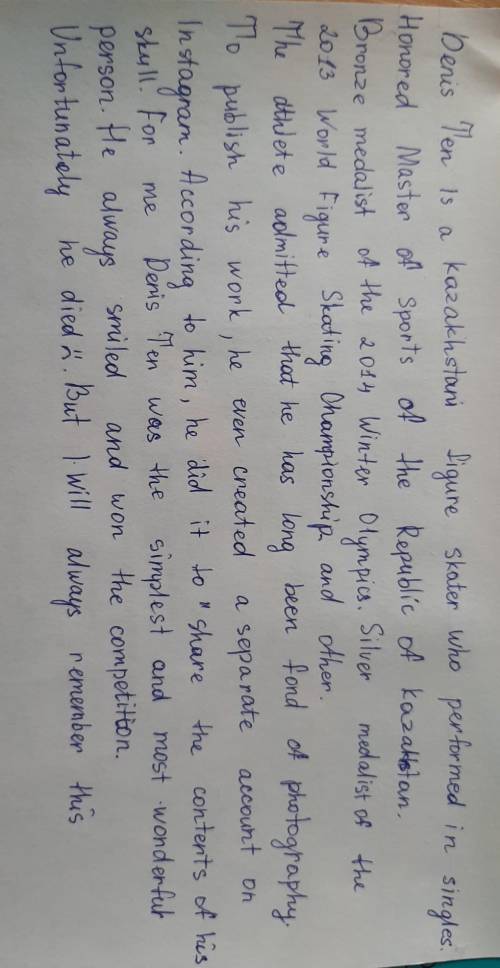 Denis Ten is a kazakhstani figure skater who performed in singles.
Honored Master of Sports of the Republic of kazakstan.
Bronze medalist of the 2014 Winter Olympics. Silver medalist of the
2013 World Figure Skating Championship and other.
The athlete admitted that he has long been fond of photography.
To publish his work, he even created a separate account on
Instagram. According to him, he did it to "share the contents of his
skull. For me Denis Ten was the simplest and most wonderful
person. He always smiled and won the competition.
Unfortunately he died :(. But I will always remember this